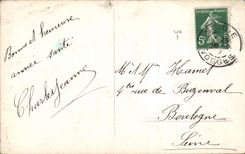 Bonne et heureuse
année santé
Charles Jeanne
M. & Mme Hamet
4 bis rue de Buzenval
Boulogne
Seine
5c